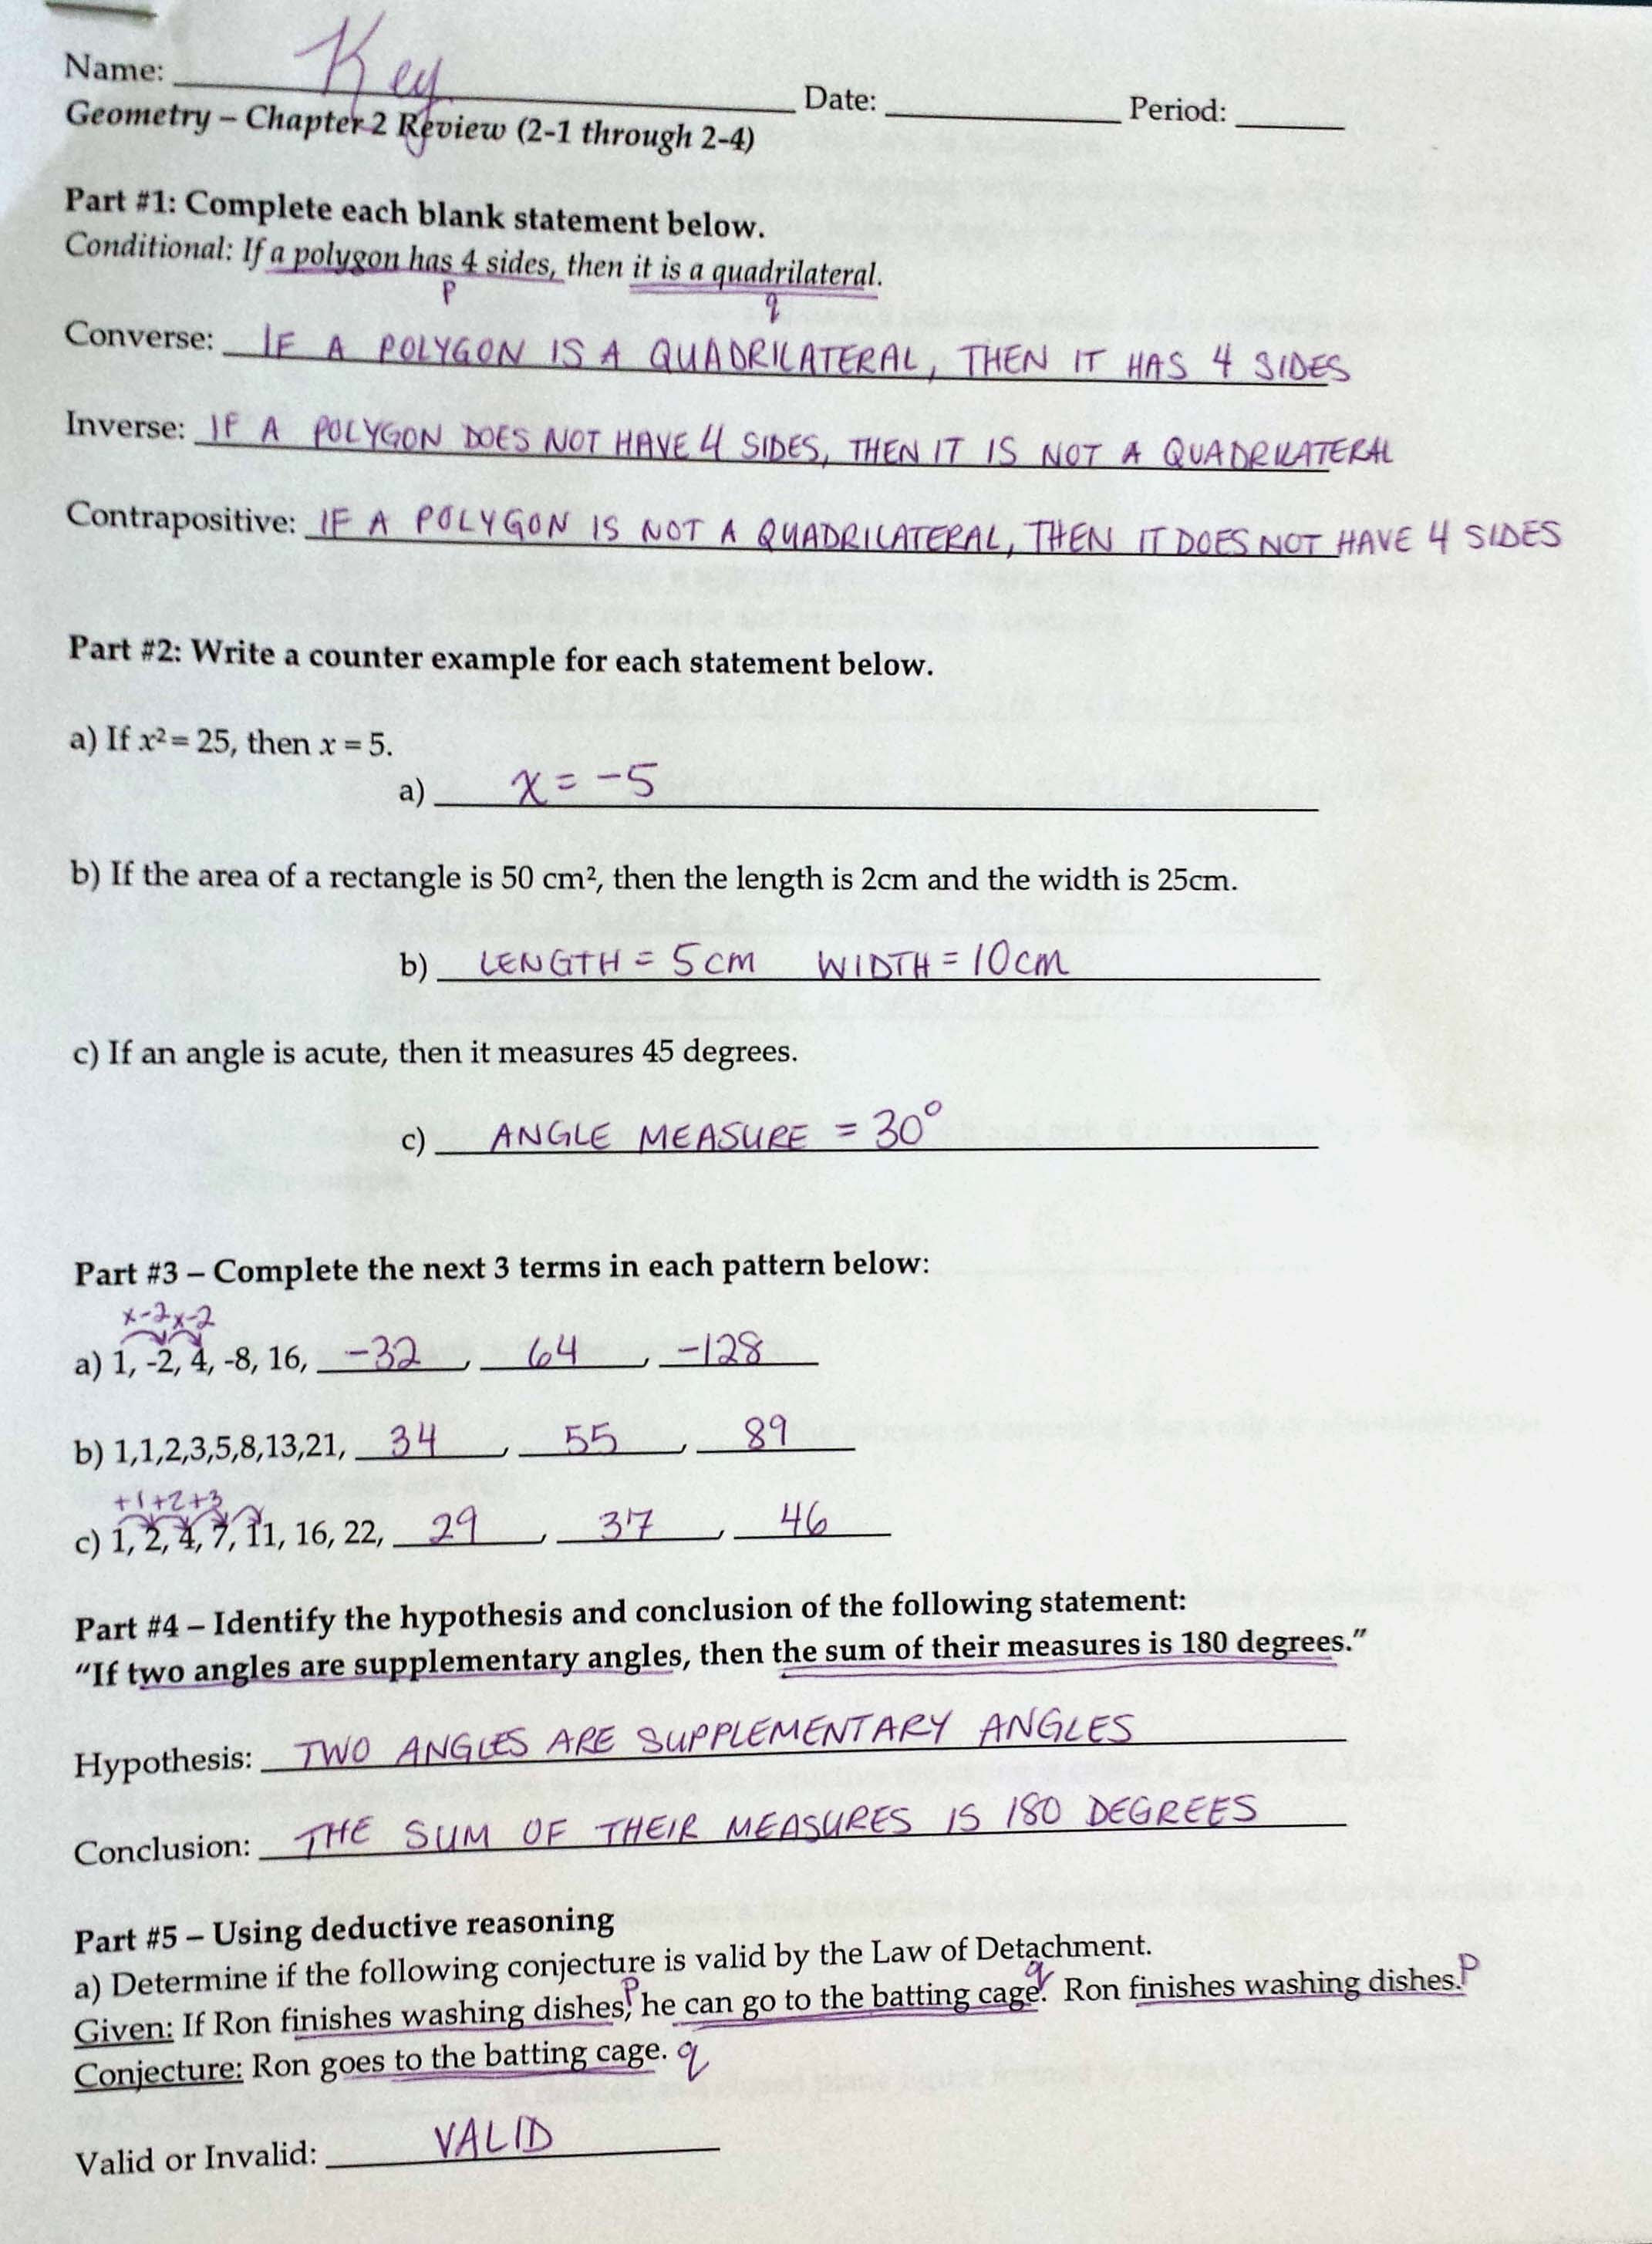 Name: Key Date: Period:
Geometry – Chapter 2 Review (2-1 through 2-4)
Part #1: Complete each blank statement below.
Conditional: If a polygon has 4 sides, then it is a quadrilateral.
P q
Converse: IF A POLYGON IS A QUADRILATERAL, THEN IT HAS 4 SIDES
Inverse: IF A POLYGON DOES NOT HAVE 4 SIDES, THEN IT IS NOT A QUADRILATERAL
Contrapositive: IF A POLYGON IS NOT A QUADRILATERAL, THEN IT DOES NOT HAVE 4 SIDES
Part #2: Write a counter example for each statement below.
a) If x² = 25, then x = 5.
a) x = -5
b) If the area of a rectangle is 50 cm², then the length is 2cm and the width is 25cm.
b) LENGTH = 5 CM WIDTH = 10 CM
c) If an angle is acute, then it measures 45 degrees.
c) ANGLE MEASURE = 30°
Part #3 – Complete the next 3 terms in each pattern below:
x-2 x-2
a) 1, -2, 4, -8, 16, -32, 64, -128
b) 1,1,2,3,5,8,13,21, 34, 55, 89
+1 +2 +3
c) 1, 2, 4, 7, 11, 16, 22, 29, 37, 46
Part #4 – Identify the hypothesis and conclusion of the following statement:
“If two angles are supplementary angles, then the sum of their measures is 180 degrees.”
Hypothesis: TWO ANGLES ARE SUPPLEMENTARY ANGLES
Conclusion: THE SUM OF THEIR MEASURES IS 180 DEGREES
Part #5 – Using deductive reasoning
a) Determine if the following conjecture is valid by the Law of Detachment.
P q P
Given: If Ron finishes washing dishes, he can go to the batting cage. Ron finishes washing dishes.
Conjecture: Ron goes to the batting cage. q
Valid or Invalid: VALID